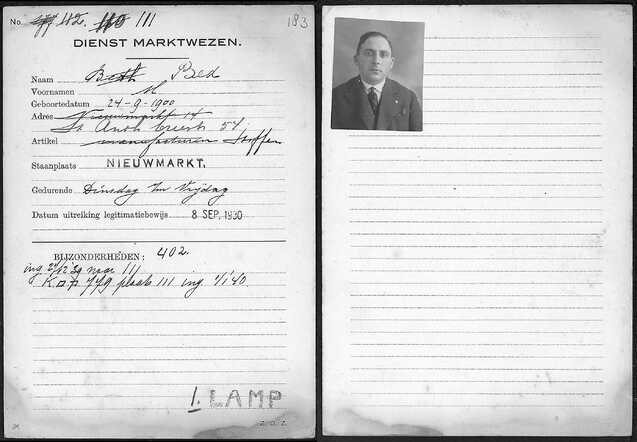 No. 42. 111
183
DIENST MARKTWEZEN.
Naam Beth Bed
Voornamen M
Geboortedatum 24-9-1900
Adres Nieuwmarkt 14
St Anth breestr 54
Artikel manufacturen Stoffen
Staanplaats NIEUWMARKT.
Gedurende Dinsdag t/m Vrijdag
Datum uitreiking legitimatiebewijs 8 SEP. 1930
BIJZONDERHEDEN: 402.
ing 27/12 '39 naar 111
779 plaats 111 ing 1/1 '40
1. LAMP
202